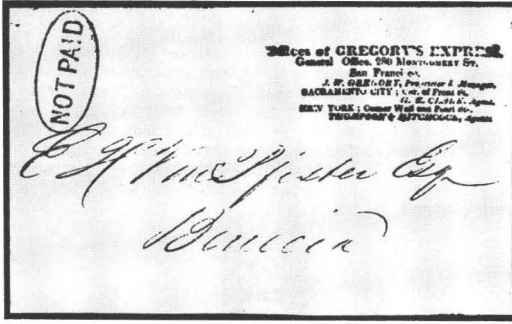 NOT PAID
Offices of GREGORY'S EXPRESS.
General Office, 280 MONTGOMERY ST,
San Franci co.
J. W. GREGORY, Proprietor & Manager,
SACRAMENTO CITY; cor. of Front st.
Agent.
NEW YORK; Corner Wall and Pearl sts.
THOMPSON & HITCHCOCK, Agents
E H Von Pfister Esq
Benicia